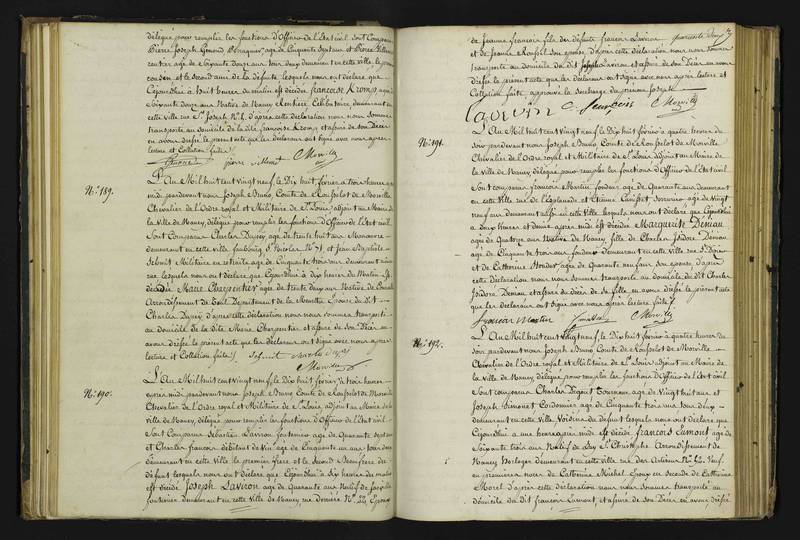 délégué pour remplir les fonctions d'Officier de l'Etat civil sont Comparus
Pierre Joseph âgé de Cinquante Sept ans et Pierre
âgé de Soixante douze ans tous deux demeurant en cette Ville, le
cousin et le second ami de la défunte, lesquels nous ont déclaré que
Cejourd'hui à huit heures du matin est décédée françoise Kromp, âgée de
Soixante douze ans Native de Nancy Rentière Célibataire demeurant en
cette Ville rue St. Joseph No. d'après cette déclaration nous nous sommes
transporté au domicile de la dite françoise Kromp et assuré de son Décès
en avons dressé le présent acte que les déclarans ont signé avec nous après
lecture et Collation faite
Morville
No. 189.
L'An Mil huit cent vingt neuf, le Dix huit février à trois heures après
midi pardevant nous Joseph Bruno Comte de Rouffelot de Morville
Chevalier de l'Ordre royal et Militaire de St. Louis, adjoint au Maire de
la Ville de Nancy, délégué pour remplir les fonctions d'Officier de l'Etat civil
Sont Comparus Charles Dupey âgé de trente huit ans Manœuvre
demeurant en cette ville faubourg St. Nicolas No. 71, et Jean Baptiste
Schmit Militaire en retraite âgé de Cinquante trois ans demeurant même
rue lesquels nous ont déclaré que Cejourd'hui à dix heures du Matin est
décédée Marie Charpentier âgée de trente deux ans Native de
Arrondissement de Toul, Département de la Meurthe Epouse du dit
Charles Dupey d'après cette déclaration nous nous sommes transporté
au domicile de la dite Marie Charpentier et assuré de son Décès en
avons dressé le présent acte que les déclarans ont signé avec nous après
lecture et Collation faite Schmit
Morville
No. 190.
L'An Mil huit cent vingt neuf, le Dix huit février à trois heures
après midi pardevant nous Joseph Bruno Comte de Rouffelot de Morville
Chevalier de l'Ordre royal et Militaire de St. Louis, adjoint au Maire de la
Ville de Nancy, délégué pour remplir les fonctions d'Officier de l'Etat civil
Sont Comparus Sébastien Laviron âgé de Quarante Sept ans
et Charles françois débitant de Vin âgé de Cinquante un ans tous deux
demeurant en cette Ville le premier frère et le second Beaufrère du
défunt lesquels nous ont déclaré que Cejourd'hui à dix heures du matin
est décédé Joseph Laviron âgé de Quarante ans Natif de
demeurant en cette Ville de Nancy, rue No. Epoux
de Jeanne françois fils des défunts françois Laviron
et de Jeanne Roussel son épouse, d'après cette déclaration nous nous sommes
transporté au domicile du dit Joseph Laviron et assuré de son Décès en avons
dressé le présent acte que les déclarans ont signé avec nous après lecture et
Collation faite, approuvé la surcharge du prénom Joseph
Laviron C. françois Morville
No. 191.
L'An Mil huit cent vingt neuf, le Dix huit février à quatre heures du
soir pardevant nous Joseph Bruno Comte de Rouffelot de Morville
Chevalier de l'Ordre royal et Militaire de St. Louis adjoint au Maire de
la Ville de Nancy délégué pour remplir les fonctions d'Officier de l'Etat civil
Sont comparus françois Martin fondeur âgé de Quarante ans demeurant
en cette Ville rue de l'Esplanade et Etienne Serrurier âgé de vingt
neuf ans demeurant aussi en cette Ville lesquels nous ont déclaré que Cejourd'hui
à deux heures et demie après midi est décédée Marguerite Déniau
âgée de Quatorze ans Native de Nancy, fille de Charles Isidore Déniau
âgé de Cinquante trois ans fondeur demeurant en cette Ville rue St. Dizier
et de Catherine âgée de Quarante neuf ans son épouse d'après
cette déclaration nous nous sommes transporté au domicile du dit Charles
Isidore Déniau et assuré du décès de sa fille en avons dressé le présent acte
que les déclarans ont signé avec nous après lecture faite
françois Martin Morville
No. 192.
L'An Mil huit cent vingt neuf, le Dix huit février à quatre heures du
soir pardevant nous Joseph Bruno Comte de Rouffelot de Morville
Chevalier de l'Ordre royal et Militaire de St. Louis adjoint au Maire de
la Ville de Nancy délégué pour remplir les fonctions d'Officier de l'Etat civil
Sont comparus Charles Tourneur âgé de Vingt huit ans et
Joseph Simonet Cordonnier âgé de Cinquante trois ans tous deux
demeurant en cette Ville, Voisins du défunt lesquels nous ont déclaré que
Cejourd'hui à une heure après midi est décédé françois Lumont âgé de
Soixante trois ans Natif de St. Christophe Arrondissement de
Nancy Horloger demeurant en cette ville rue des Artisans No. Veuf
en premières noces de Catherine Michel Epoux en seconde de Catherine
Morel d'après cette déclaration nous nous sommes transporté au
domicile du dit françois Lumont, et assuré de son Décès en avons dressé